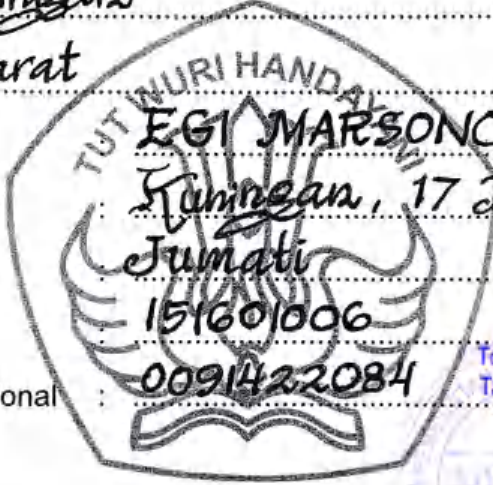 arat
TUT WURI HANDAYANI
EGI MARSONO
: Kuningan, 17
Jumati
: 151601006
onal : 0091422084